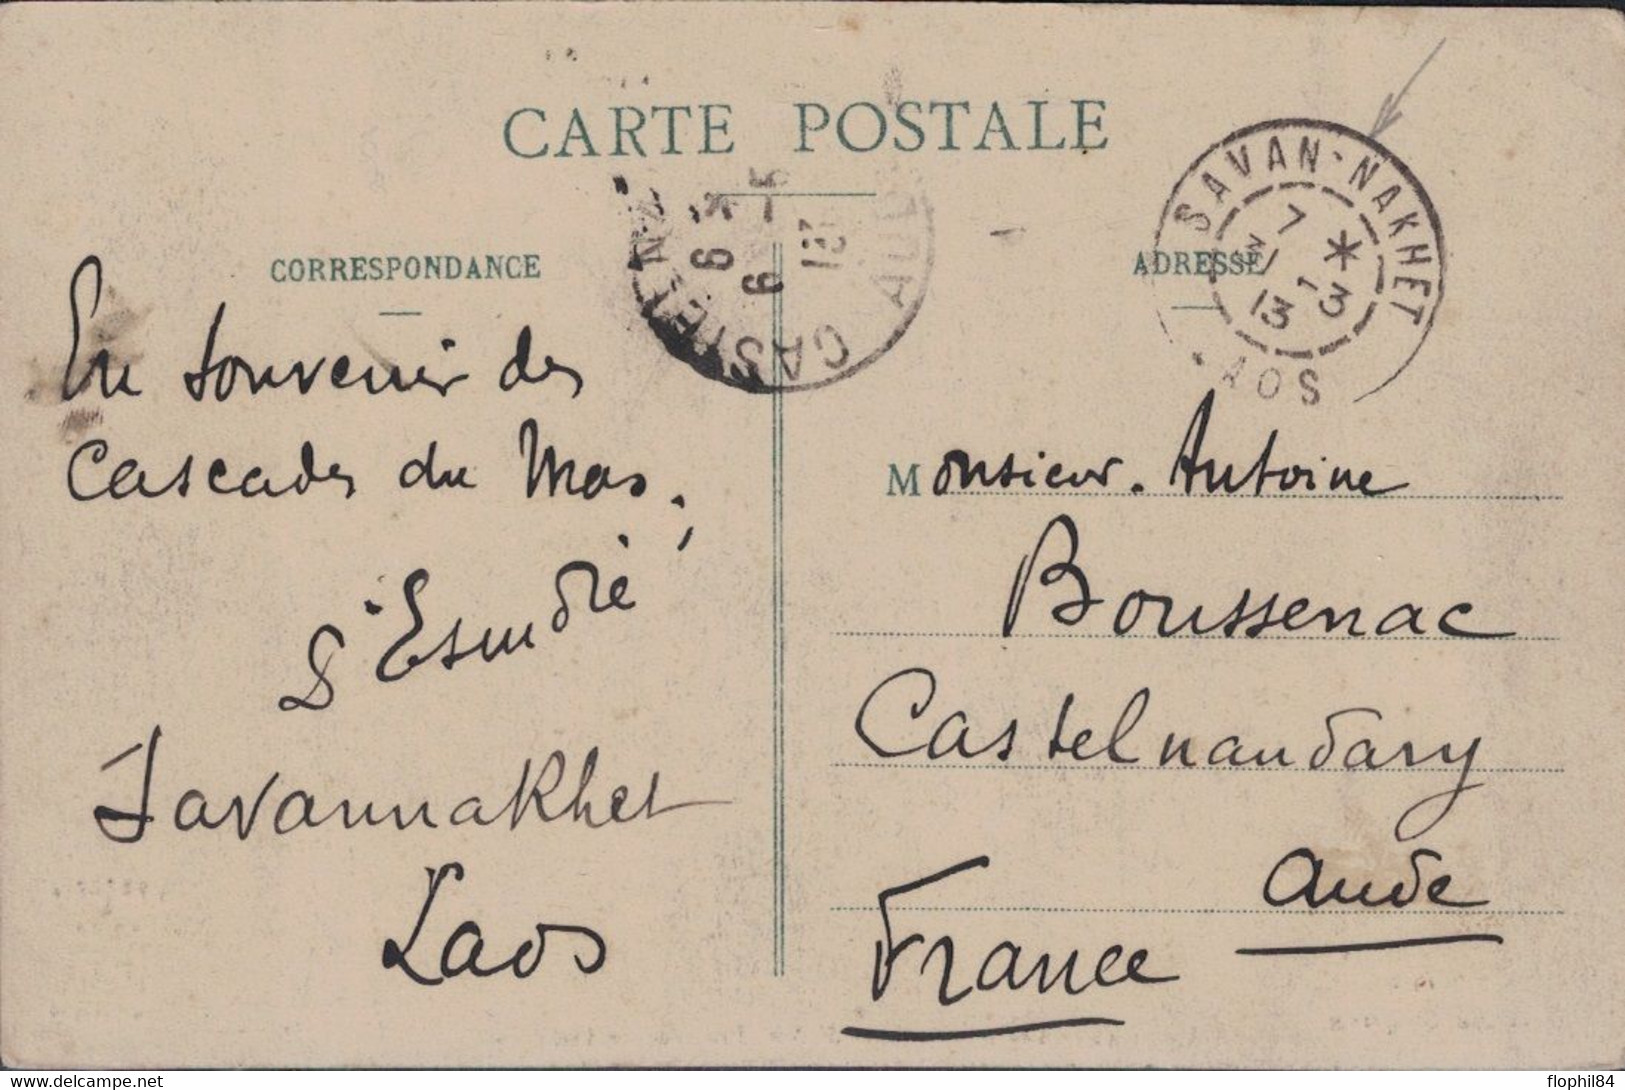 CARTE POSTALE
CORRESPONDANCE
En souvenir des
Cascades du Mas.
Savannakhet
Laos
ADRESSE
SAVAN-NAKHET
7 * 13
13
LAOS
CASTELN
AUDE
6 9
9
13
Monsieur. Antoine
Boussenac
Castelnaudary
Aude
France
delcampe.net
flophil84